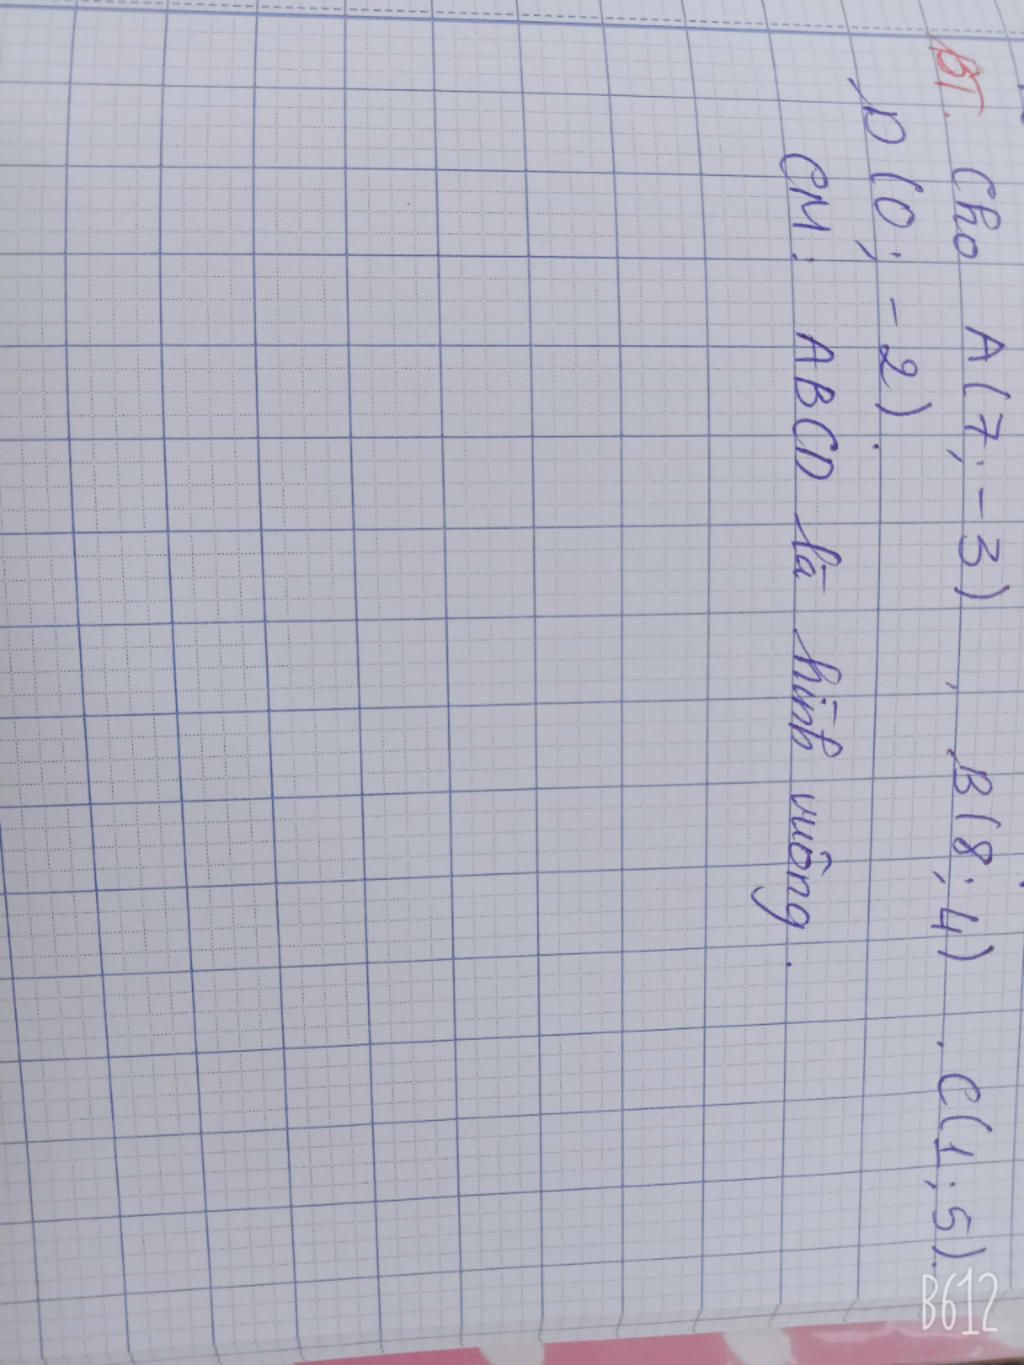 BT. Cho A(7; -3), B(8; 4), C(1; 5).
D(0; -2).
CM: ABCD là hình vuông.
B612